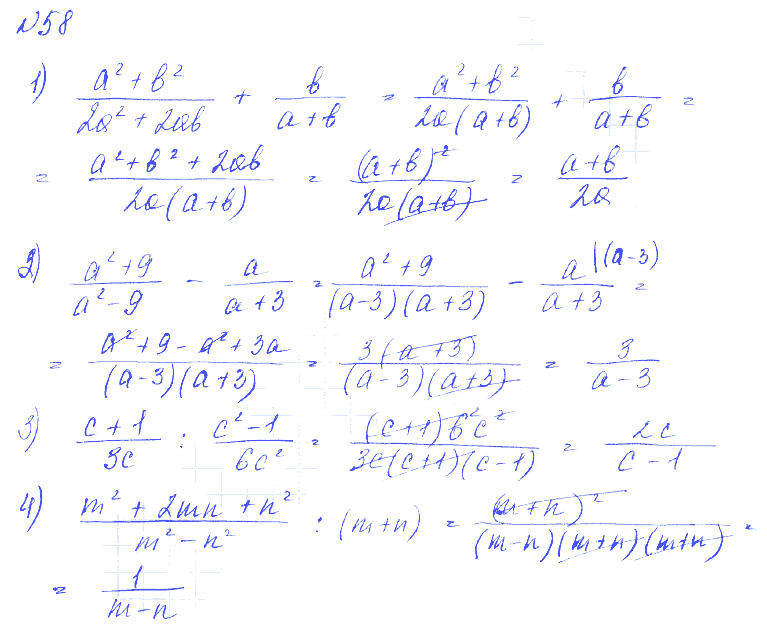 №58
1) (a² + b²)/(2a² + 2ab) + b/(a + b) = (a² + b²)/(2a(a + b)) + b/(a + b) =
= (a² + b² + 2ab)/(2a(a + b)) = (a + b)²/(2a(a + b)) = (a + b)/(2a)
2) (a² + 9)/(a² - 9) - a/(a + 3) = (a² + 9)/((a - 3)(a + 3)) - a|(a - 3)/(a + 3) =
= (a² + 9 - a² + 3a)/((a - 3)(a + 3)) = 3(a + 3)/((a - 3)(a + 3)) = 3/(a - 3)
3) (c + 1)/(3c) : (c² - 1)/(6c²) = (c + 1)6²c²/(3c(c + 1)(c - 1)) = 2c/(c - 1)
4) (m² + 2mn + n²)/(m² - n²) : (m + n) = (m + n)²/((m - n)(m + n)(m + n)) =
= 1/(m - n)